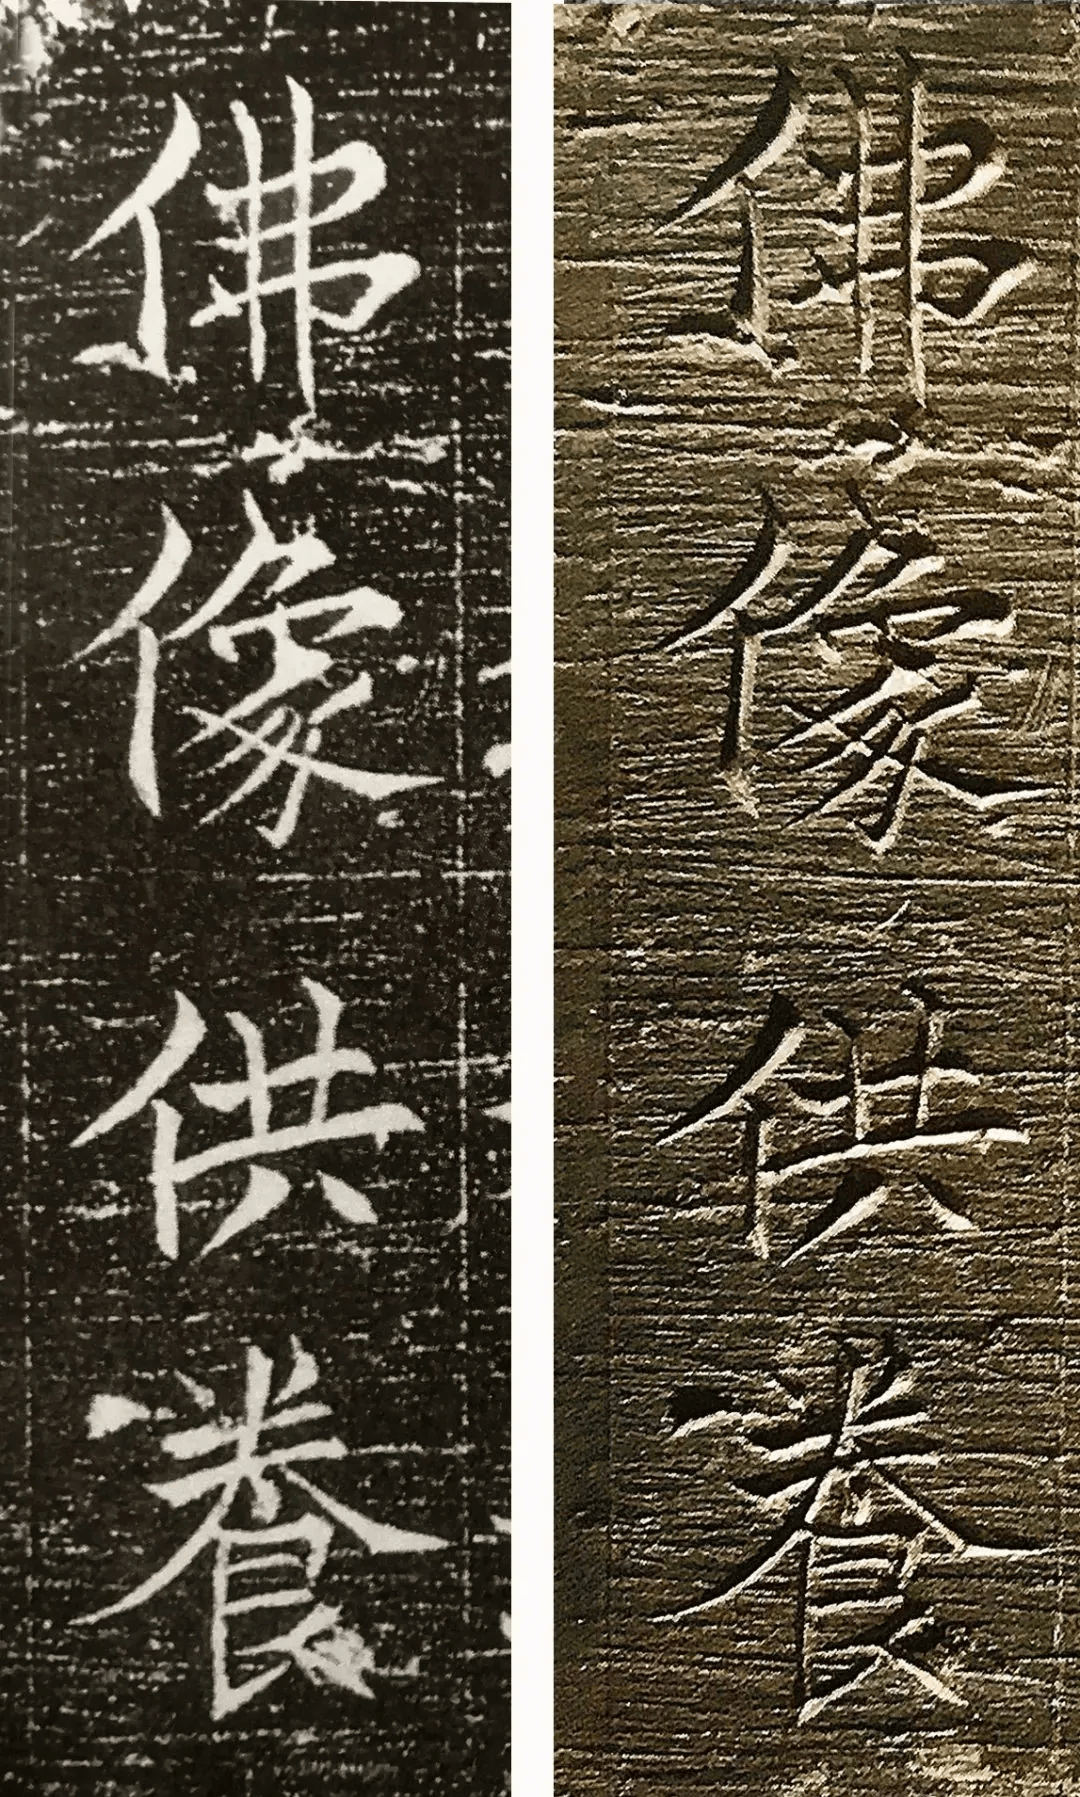 佛像供養
佛像供養